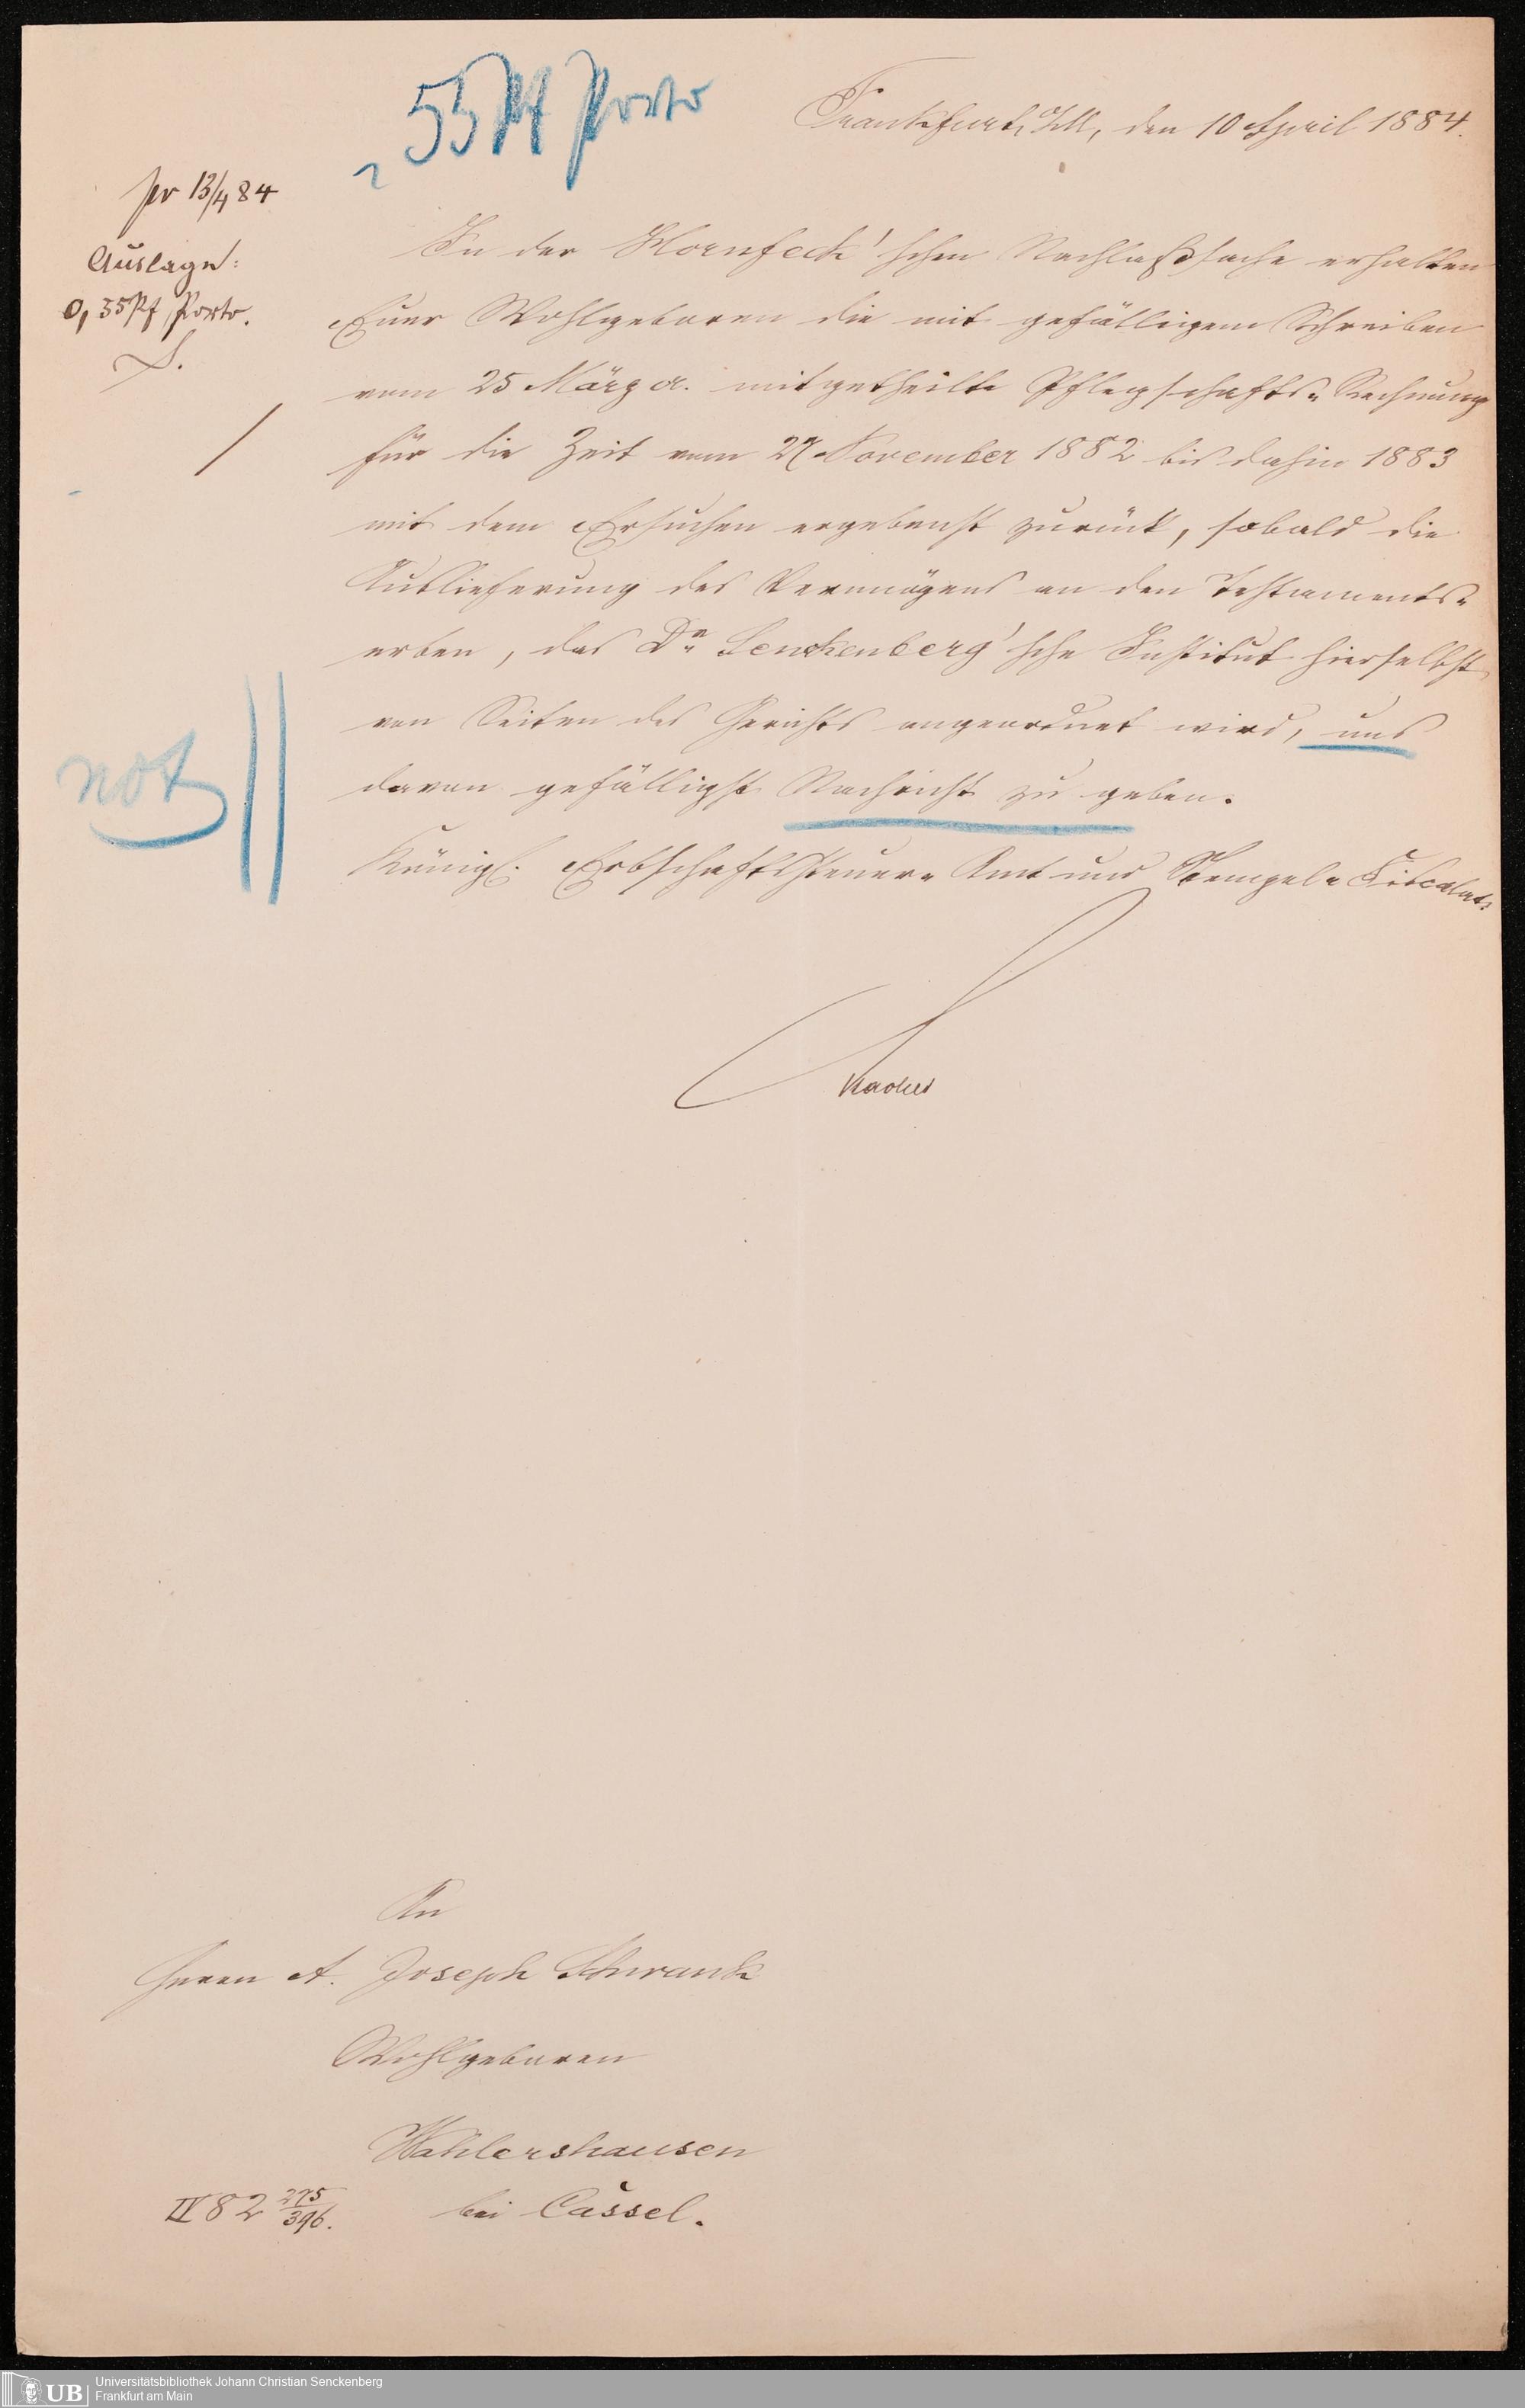 55 Pf Porto
Frankfurt a/M, den 10 April 1884.
pr 13/4 84
Auslage:
0,35 Pf Porto.
S.
In der Hornfeck'schen Nachlaßsache erhalten
Euer Wohlgeboren die mit gefälligem Schreiben
vom 25 März cr. mitgetheilte Pflegschafts-Rechnung
für die Zeit vom 27 November 1882 bis dahin 1883
mit dem Ersuchen ergebenst zurück, sobald die
Auslieferung des Vermögens an den Testaments-
erben, das Dr Senckenberg'sche Institut hierselbst
von Seiten des Gerichts angeordnet wird, uns
davon gefälligst Nachricht zu geben.
not
Königl. Erbschaftssteuer-Amt und Stempel-Fiscalat.
An
Herrn A. Joseph Schwank
Wohlgeboren
Wahlershausen
bei Cassel.
IV 82 275/396.
UB Universitätsbibliothek Johann Christian Senckenberg
Frankfurt am Main